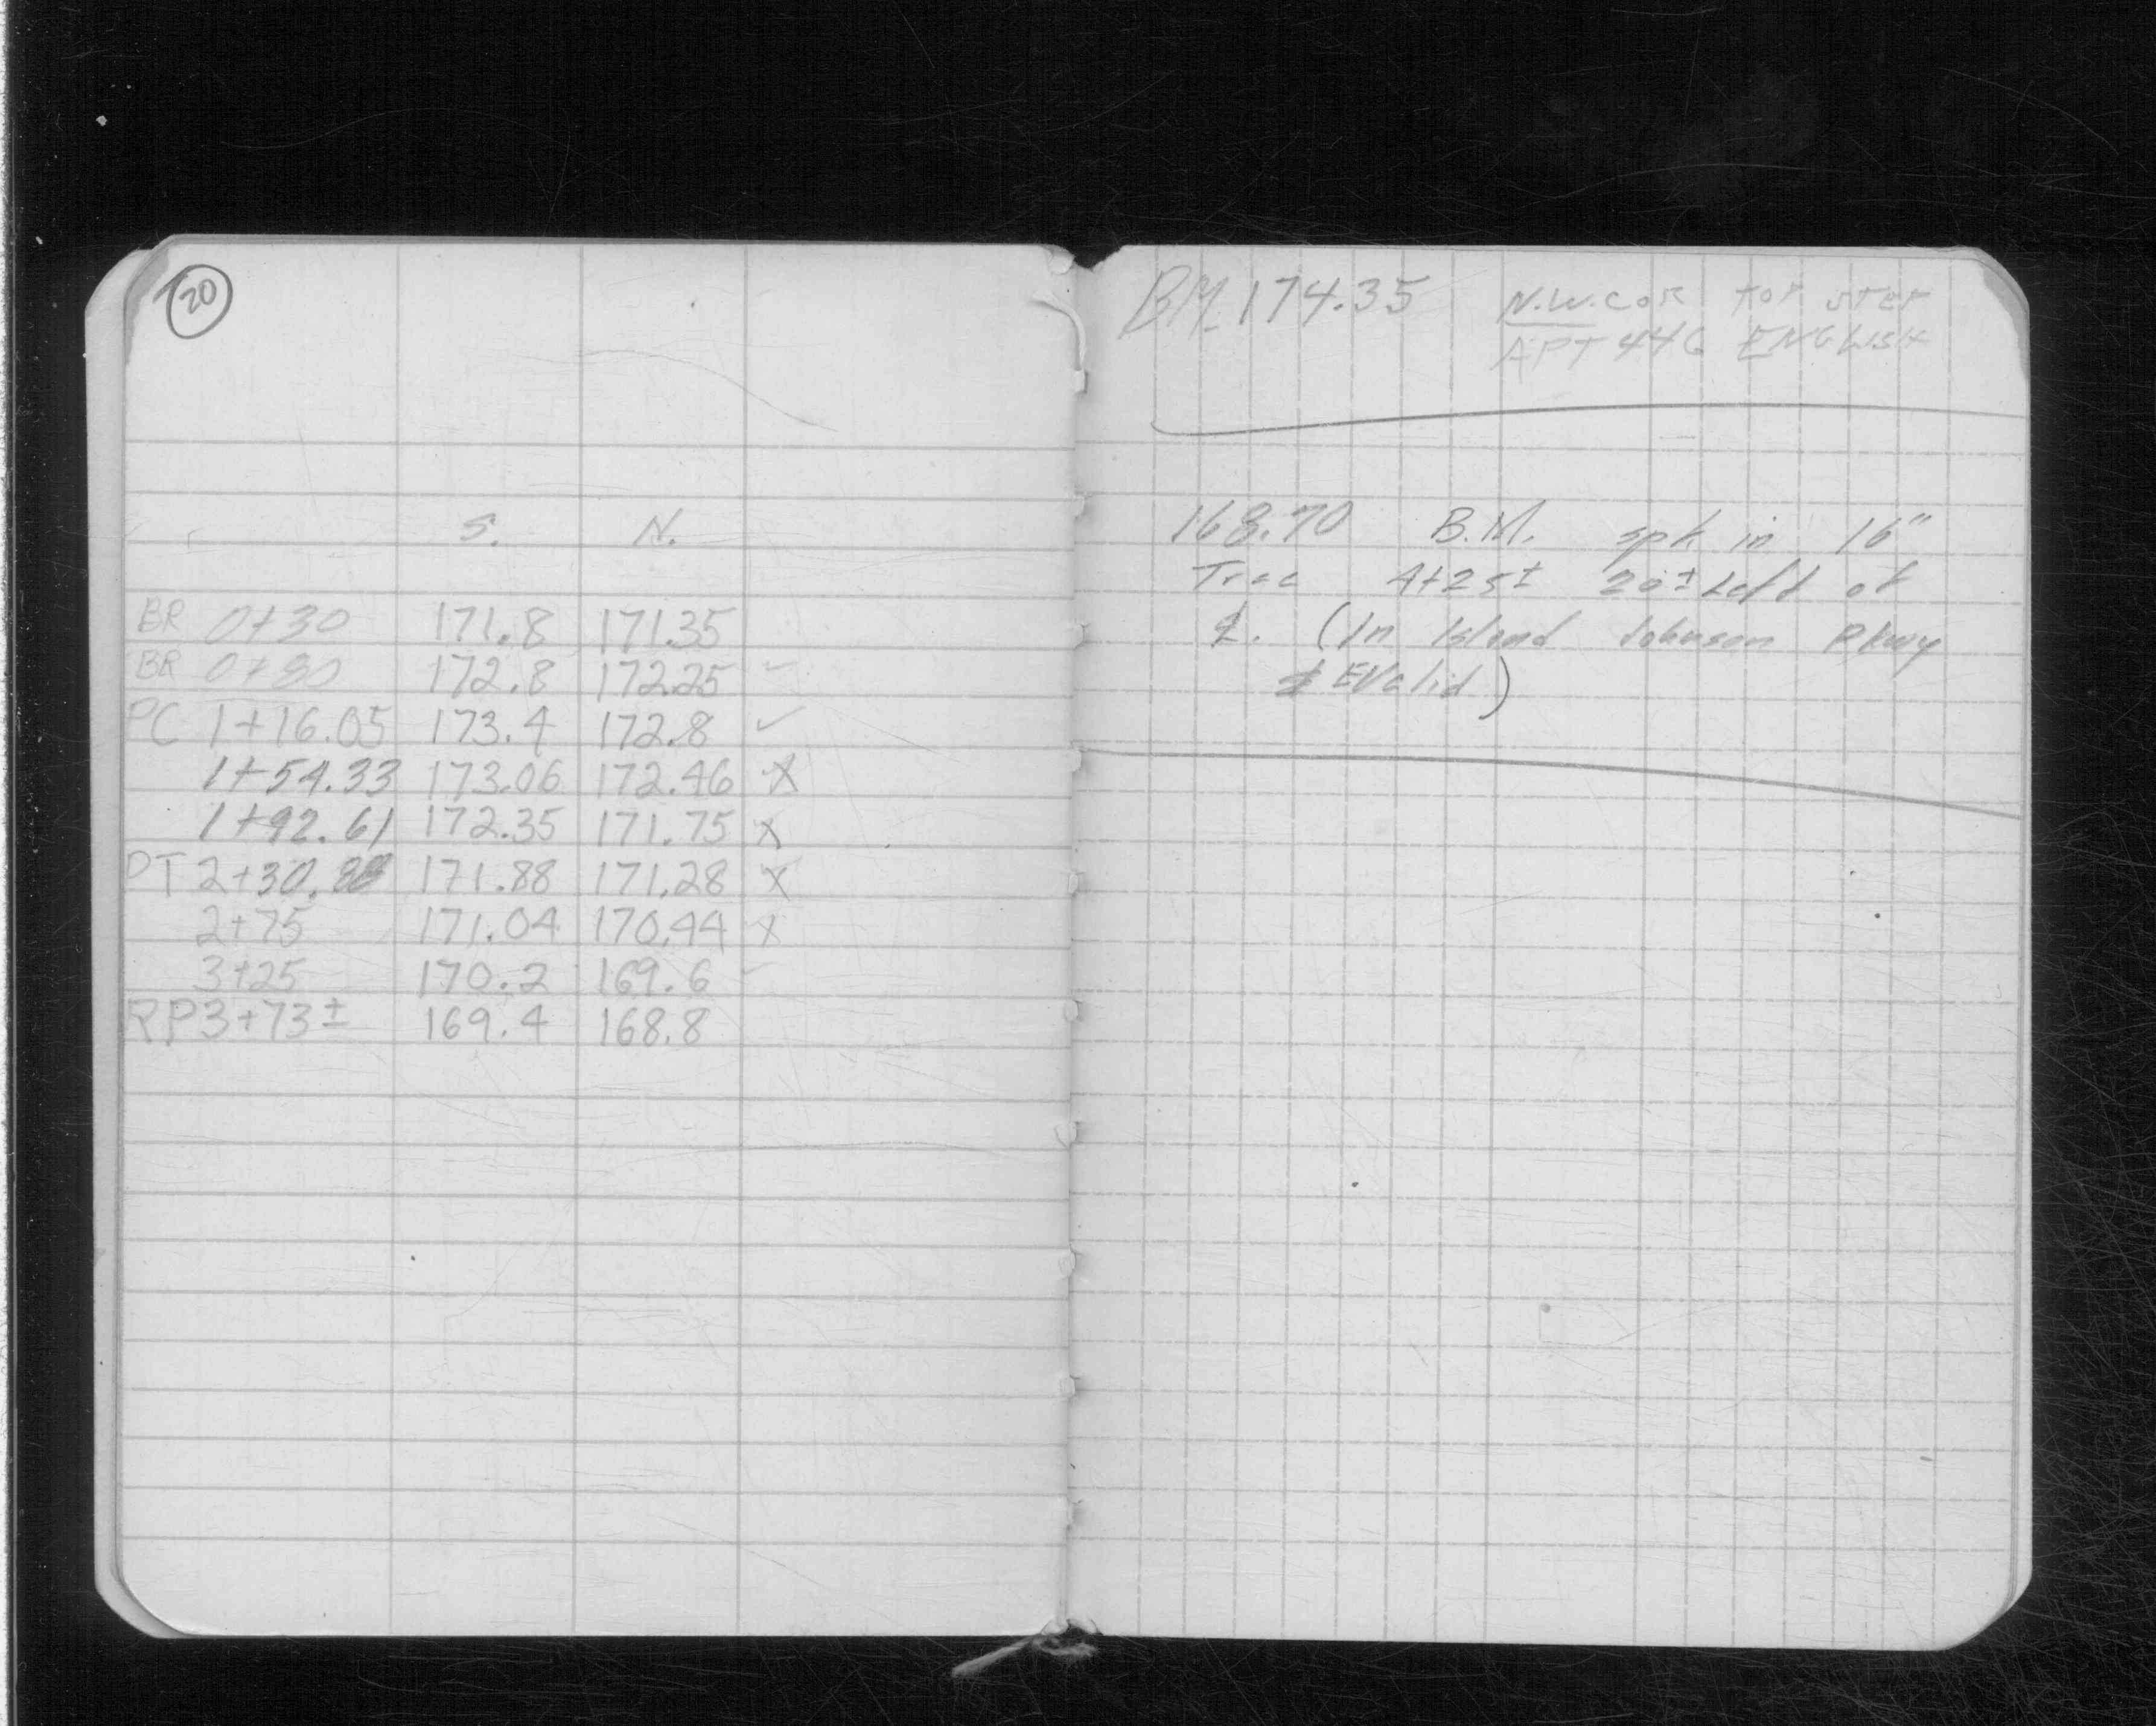 20
S. N.
BR 0+30 171.8 171.35
BR 0+80 172.8 172.25 ✓
PC 1+16.05 173.4 172.8 ✓
1+54.33 173.06 172.46 X
1+92.61 172.35 171.75 X
PT 2+30.88 171.88 171.28 X
2+75 171.04 170.44 X
3+25 170.2 169.6 ✓
RP 3+73± 169.4 168.8
BM 174.35 N.W. COR TOP STEP
APT 446 ENGLISH
168.70 B.M. spk in 16"
Tree 4+25± 20± Left of
℄. (In Island Johnson Pkwy
& EUclid)